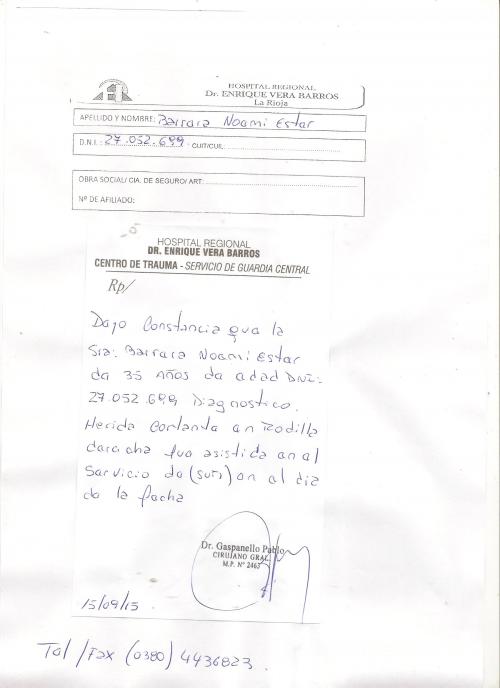 HOSPITAL REGIONAL
Dr. ENRIQUE VERA BARROS
La Rioja
APELLIDO Y NOMBRE: Barrera Noemi Ester
D.N.I.: 27.052.699 - CUIT/CUIL:
OBRA SOCIAL/ CIA. DE SEGURO/ ART:
Nº DE AFILIADO:
HOSPITAL REGIONAL
DR. ENRIQUE VERA BARROS
CENTRO DE TRAUMA - SERVICIO DE GUARDIA CENTRAL
Rp/
Dejo Constancia que la
Sra: Barrera Noemi Ester
de 35 Años de edad DNI:
27.052.699 Diagnostico.
Herida Cortante en Rodilla
derecha fue asistida en el
Servicio de (sum) en el dia
de la fecha
Dr. Gaspanello Pablo
CIRUJANO GRAL.
M.P. Nº 2463
15/09/15
Tel/Fax (0380) 4436823.